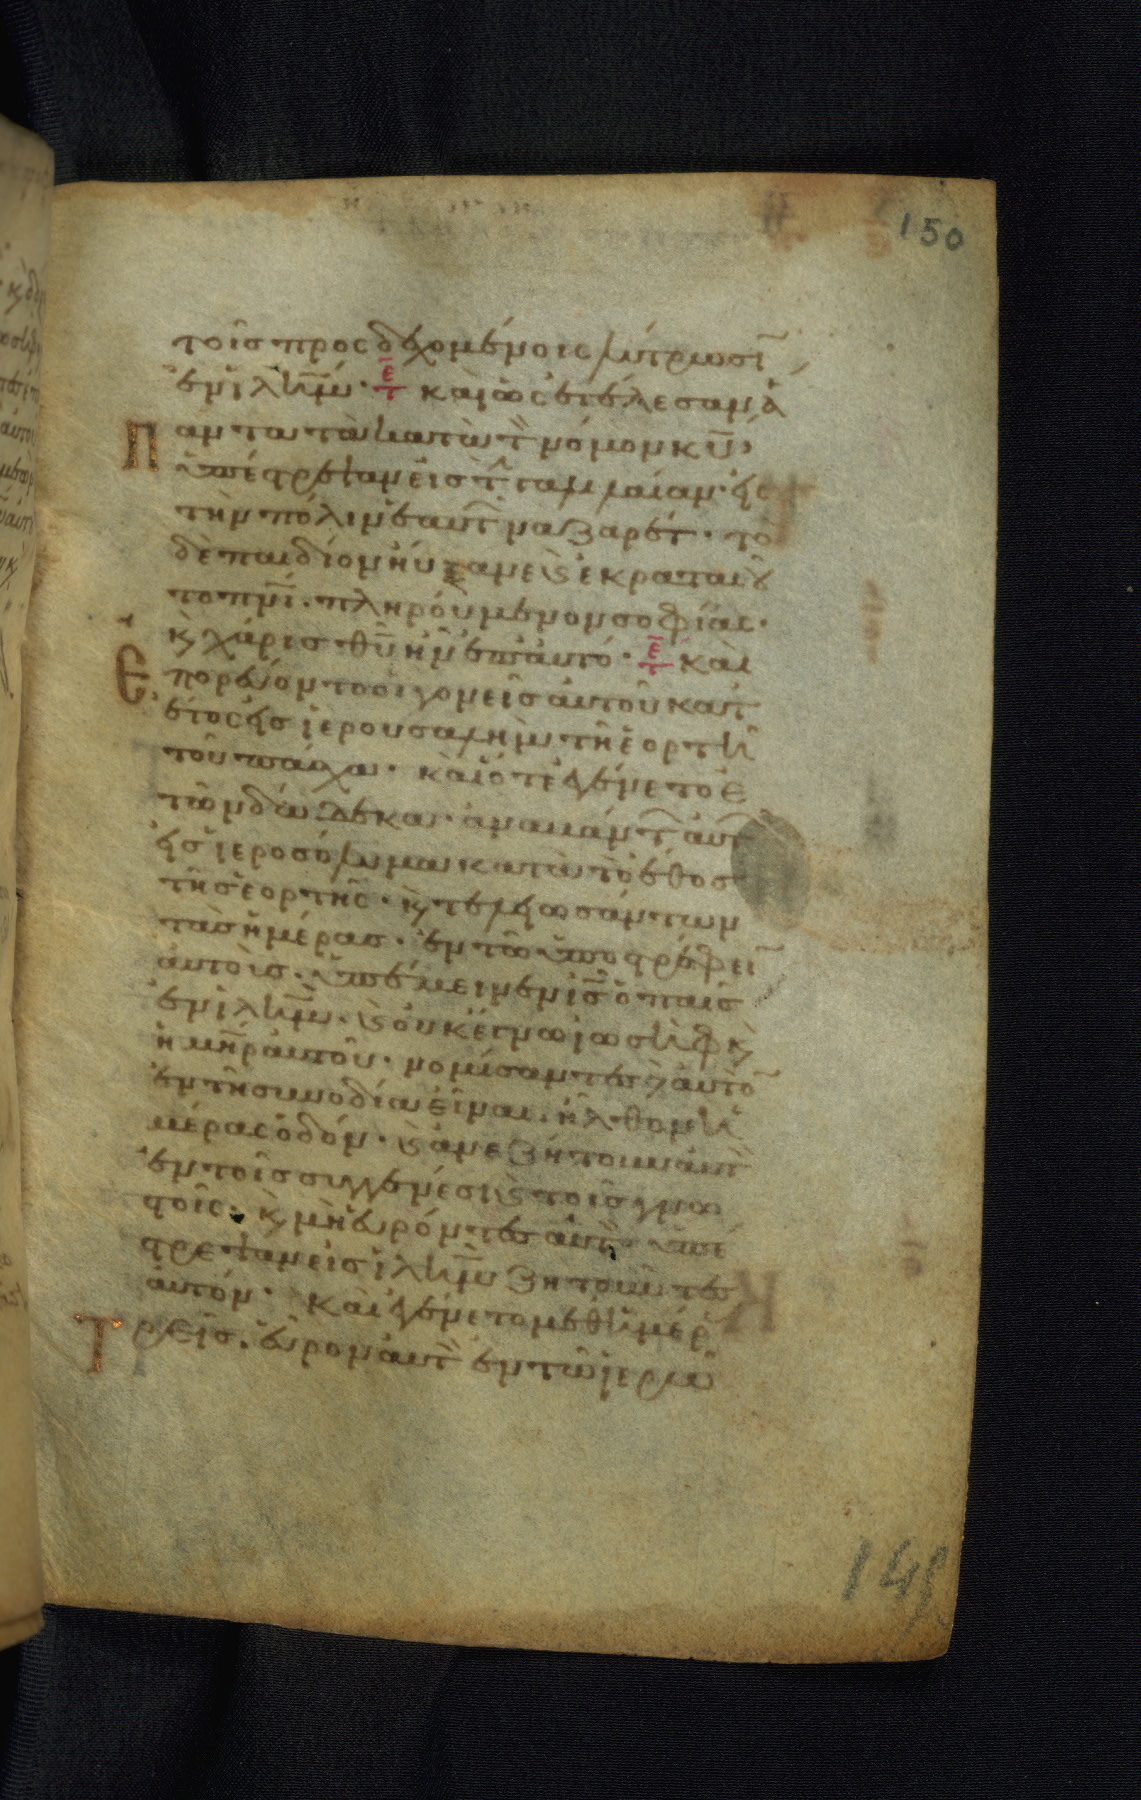 150
τοῖσ προσδεχομένοις λύτρωσῑ
ἐν ἰλη̄μ· ε̄τ καὶ ὡς ἐτέλεσαν ἁ
Παντα τὰ κατὰ τ̀ νόμον κ̄υ,
ὑπέστρεψαν εἰς τ̀ γαλιλαίαν· εἰς
τὴν πόλιν ἑαυτ̄ ναζαρέτ· το
δὲ παιδίον ηὔξανε ϗ ἐκραταιȣ
το πν̄ι· πληρούμενον σοφίας·
ϗ χάρισ θῡ ἦν ἐπ αὐτό· ε̄τ καὶ
Ἐπορεύοντο οἱ γονεῖσ αὐτοῦ κατ
ἔτος εἰσ ἱερουσαλὴμ τῆ ἑορτῆ
τοῦ πάσχα· καὶ ὅτε ἐγένετο ἐ
τῶν δώδεκα· ἀναβάντ̄ αὐτ̄
εἰσ ἱεροσόλυμα κατὰ τὸ ἔθοσ
τῆσ ἑορτῆς· ϗ τελειωσάντων
τὰσ ἡμέρασ· ἐν τῶ ὑποστρέφειν̄
αὐτοὺσ· ὑπέμεινεν ῑσ ὁ παῖσ
ἐν ἰλη̄μ· ϗ οὐκ ἔγνω ἰωσὴφ ϗ
ἡ μη̄ρ αὐτοῦ· νομίσαντες δ αὐτὸ̄
ἐν τῆ συνοδία εἶναι· ἦλθον ἡ
μέρας ὁδόν· ϗ ἀνεζήτουν αὐτὸ
ἐν τοῖσ συγγενέσι ϗ τοῖσ γνω
στοῖς· ϗ μὴ εὑρόντες αὐτὸ· ὑπέ
στρεψαν εἰσ ἰλη̄μ ζητοῦντες
αὐτόν· Καὶ ἐγένετο μεθ ἡμέρ
Τρεῖσ· εὗρον αὐτὸ ἐν τῶ ἱερῶ